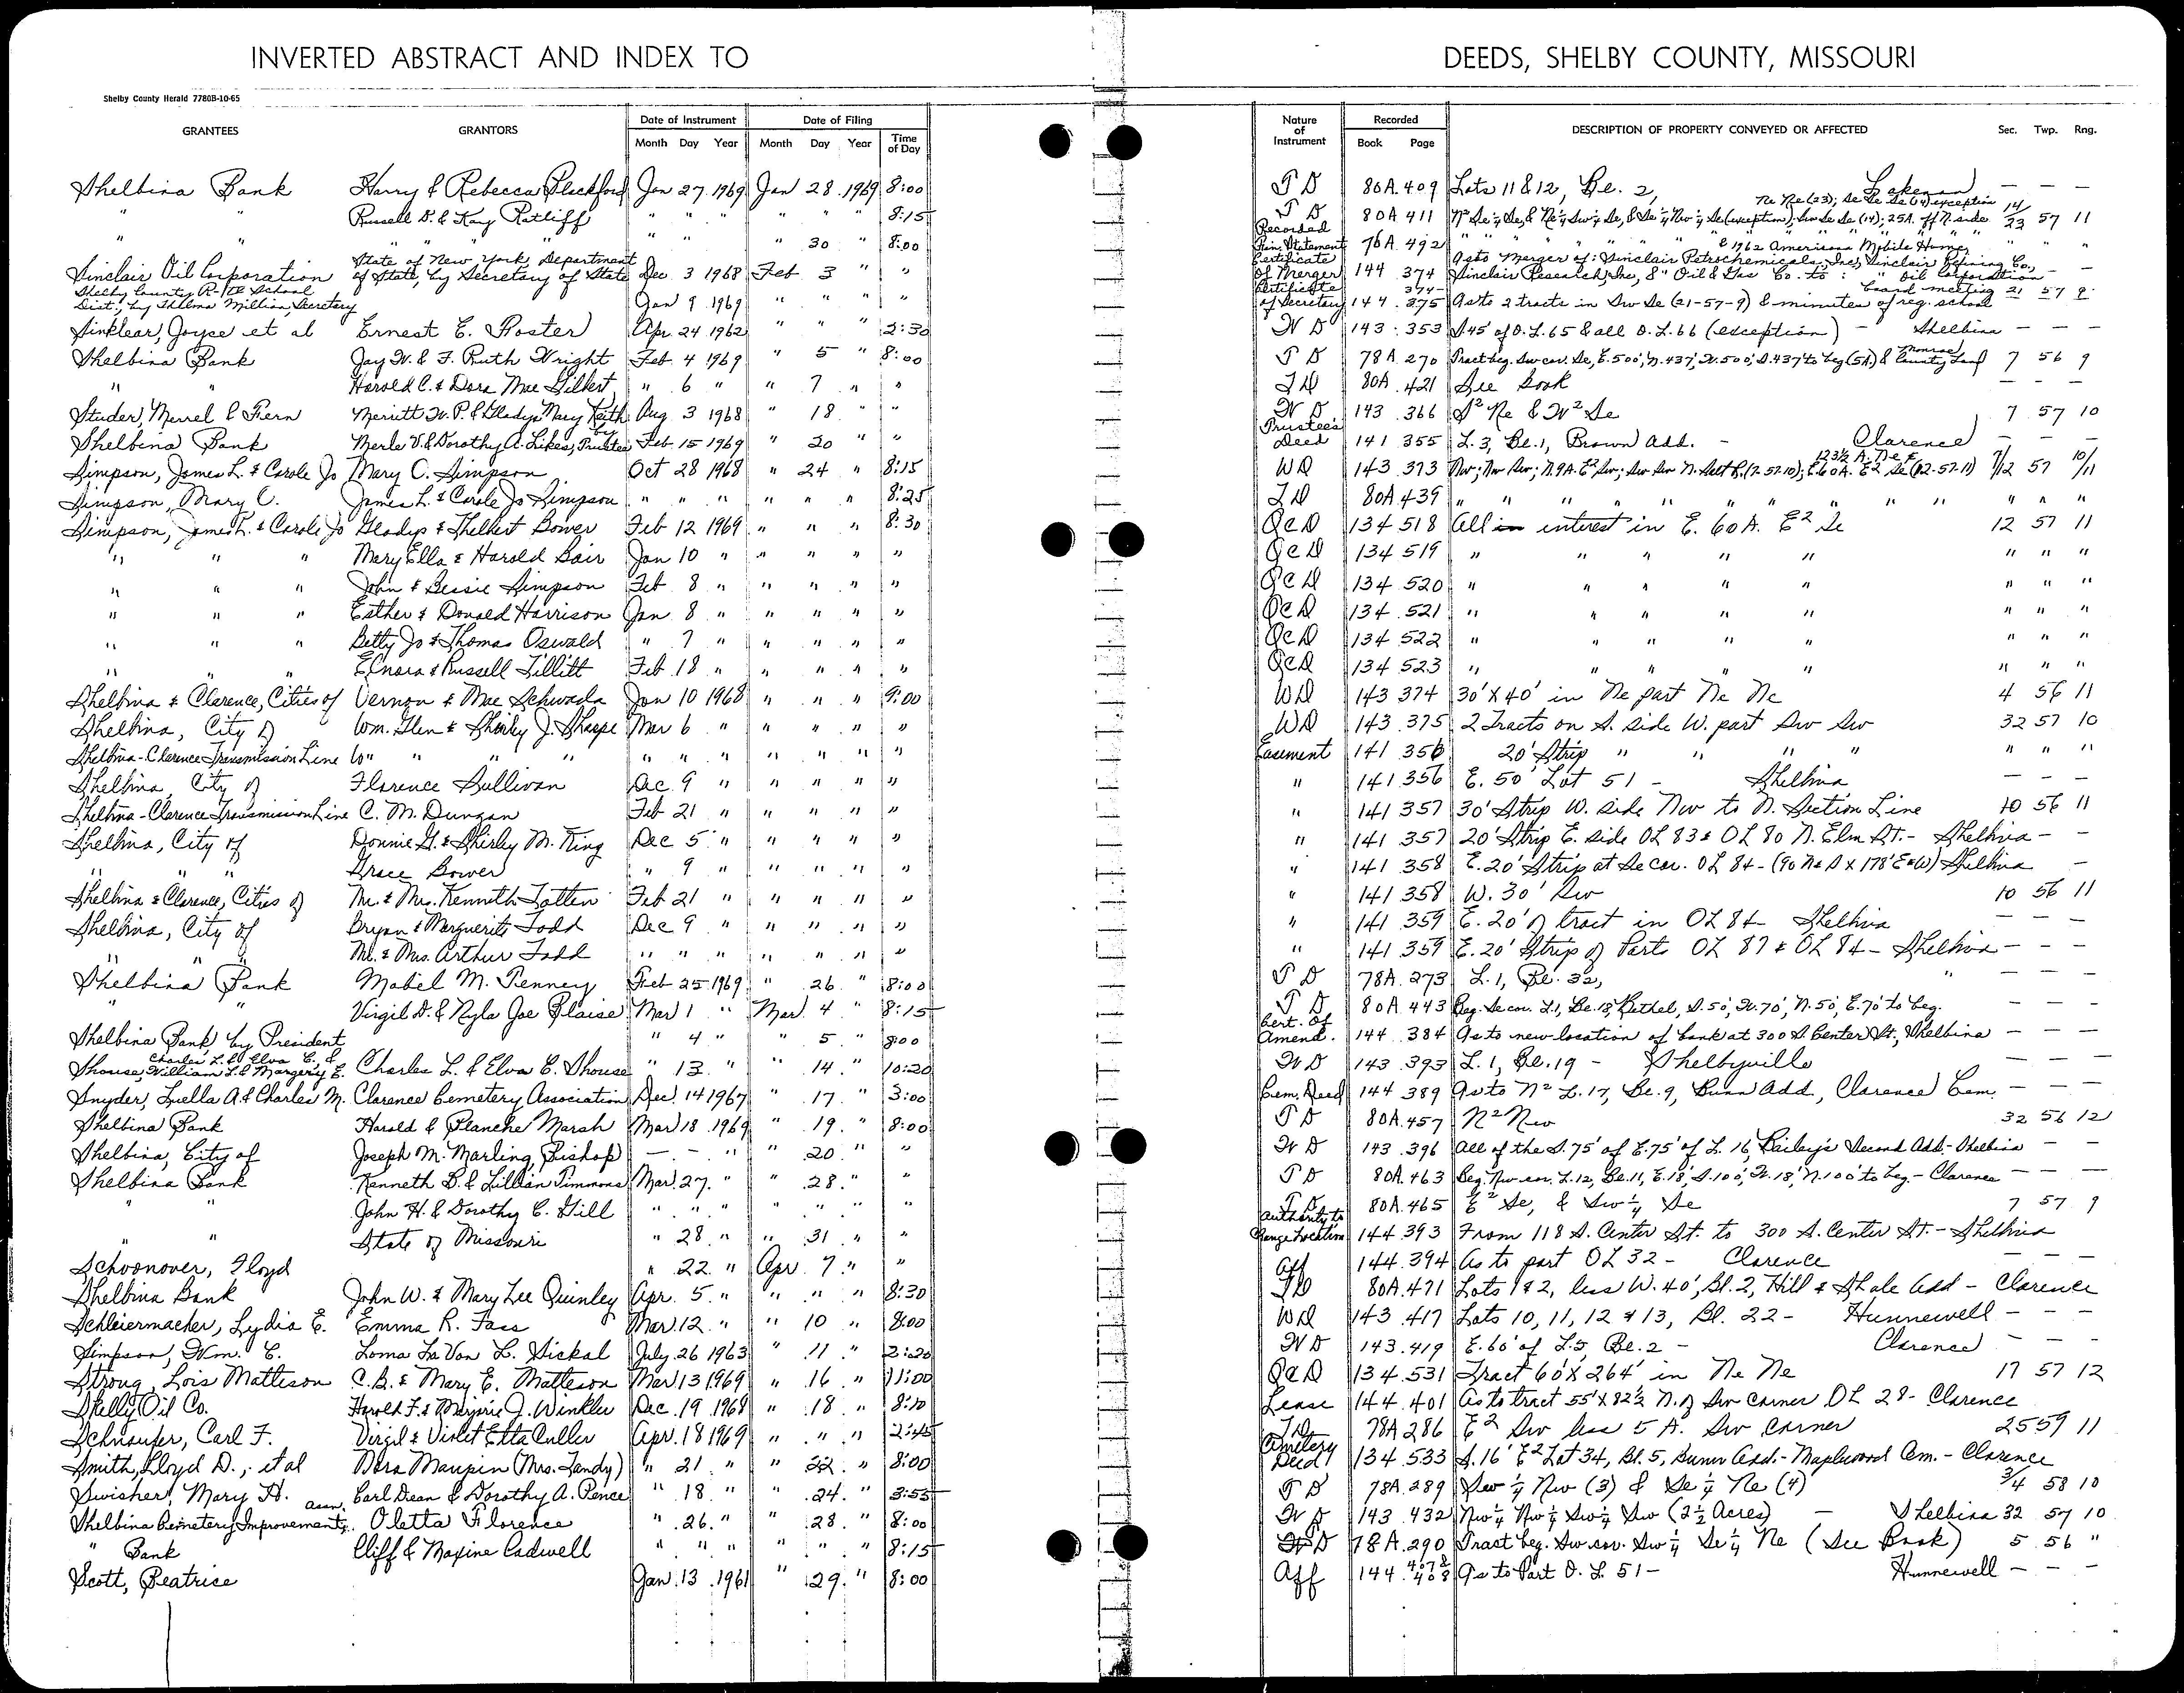 INVERTED ABSTRACT AND INDEX TO DEEDS, SHELBY COUNTY, MISSOURI
Shelby County Herald 7780B-10-65
GRANTEES GRANTORS Date of Instrument Date of Filing Nature of Instrument Recorded DESCRIPTION OF PROPERTY CONVEYED OR AFFECTED Sec. Twp. Rng.
Month Day Year Month Day Year Time of Day Book Page
Shelbina Bank Harry & Rebecca Blackford Jan 27 1969 Jan 28 1969 8:00 T D 80A 409 Lots 11 & 12, Bl. 2, Lakenan — — —
" " Russell D. & Kay Ratliff " " " " " " 8:15 T D 80A 411 N² Se ¼ Se, & Ne ¼ Sw ¼ Se, & Se ¼ Nw ¼ Se (exception); Sw Se Se (14); 25A. off N. side Ne Ne (23); Se Se Se (14) exception 14/23 57 11
" " " " " " " " " 30 " 8:00 Recorded Fin. Statement 76A 492 " " " " & 1962 Americana Mobile Home " " "
Sinclair Oil Corporation State of New York, Department of State, by Secretary of State Dec 3 1968 Feb 3 " " Certificate of Merger 144 374 As to Merger of: Sinclair Petrochemicals, Inc, Sinclair Refining Co, Sinclair Research, Inc, & " Oil & Gas Co. to: " Oil Corporation — —
Shelby County R-IV School Dist, by Thelma Million, Secretary Jan 9 1969 " " " " Certificate of Secretary 144 374-375 As to 2 tracts in Sw Se (21-57-9) & minutes of reg. school board meeting 21 57 9
Sinklear, Joyce et al Ernest E. Foster Apr 24 1962 " " " 2:30 W D 143 353 S 45' of O. L. 65 & all O. L. 66 (exception) – Shelbina — — —
Shelbina Bank Jay W. & F. Ruth Wright Feb 4 1969 " 5 " 8:00 T D 78A 270 Tract beg. Sw cor. Se, E. 500', N. 437', W. 500', S. 437' to beg (5A) & Monroe County Land 7 56 9
" " Harold C. & Dora Mae Gilbert " 6 " " 7 " " T D 80A 421 See Book — — —
Studer, Merrel & Fiern Merritt W. P. & Gladys Mary Keith Aug 3 1968 " 18 " " W D 143 366 S² Ne & N² Se 7 57 10
Shelbina Bank Merle V. & Dorothy A. Likes, by Trustee Feb 15 1969 " 20 " " Trustee's Deed 141 355 L. 3, Bl. 1, Brown Add. – Clarence — — —
Simpson, James L. & Carole Jo Mary C. Simpson Oct 28 1968 " 24 " 8:15 WD 143 373 Nw; Nw Sw; N. 9A. E² Sw; Sw Sw N. (7-57-10); E. 60A. E² Se (12-57-11) 7/12 57 10/11
Simpson, Mary C. James L. & Carole Jo Simpson " " " " " " 8:25 T D 80A 439 " " " " " " " " " " " "
Simpson, James L. & Carole Jo Gladys & Thelbert Bower Feb 12 1969 " " " 8:30 QCD 134 518 All in interest in E. 60 A. E² Se 12 57 11
" " " Mary Ella & Harold Bair Jan 10 " " " " " QCD 134 519 " " " " " " " "
" " " John & Bessie Simpson Feb 8 " " " " " QCD 134 520 " " " " " " " "
" " " Esther & Donald Harrison Jan 8 " " " " " QCD 134 521 " " " " " " " "
" " " Betty Jo & Thomas Oswald " 7 " " " " " QCD 134 522 " " " " " " " "
" " " Elnora & Russell Tillitt Feb 18 " " " " " QCD 134 523 " " " " " " " "
Shelbina & Clarence, Cities of Vernon & Mae Schwada Jan 10 1968 " " " 9:00 WD 143 374 30' X 40' in Ne part Ne Ne 4 56 11
Shelbina, City of Wm. Glen & Shirley J. Sharpe Mar 6 " " " " " WD 143 375 2 Tracts on S. side W. part Sw Sw 32 57 10
Shelbina-Clarence Transmission Line Wm " " " " " " " " " " Easement 141 356 20' Strip " " " " " " "
Shelbina, City of Florence Sullivan Dec 9 " " " " " " 141 356 E. 50' Lot 51 – Shelbina — — —
Shelbina-Clarence Transmission Line C. M. Dungan Feb 21 " " " " " " 141 357 30' Strip W. side Nw to N. Section Line 10 56 11
Shelbina, City of Donnie G. & Shirley M. King Dec 5 " " " " " " 141 357 20' Strip E. side OL 83 & OL 80 N. Elm St. – Shelbina — —
" " " Grace Bower " 9 " " " " " " 141 358 E. 20' Strip at Se cor. OL 84 – (90 N & S X 178' E & W) Shelbina —
Shelbina & Clarence, Cities of Mr. & Mrs. Kenneth Totten Feb 21 " " " " " " 141 358 W. 30' Sw 10 56 11
Shelbina, City of Bryan & Marguerite Todd Dec 9 " " " " " " 141 359 E. 20' of tract in OL 84 Shelbina — — —
" " " Mr. & Mrs. Arthur Todd " " " " " " " " 141 359 E. 20' Strip of Parts OL 87 & OL 84 – Shelbina — — —
Shelbina Bank Mabel M. Penney Feb 25 1969 " 26 " 8:00 T D 78A 273 L. 1, Bl. 32, " — — —
" " Virgil D. & Nyla Joe Blaise Mar 1 " Mar 4 " 8:15 T D 80A 443 Beg. Se cor. L. 1, Bl. 18, Bethel, S. 50', W. 70', N. 50', E. 70' to beg. — — —
Shelbina Bank by President " 4 " " 5 " 8:00 Cert. of Amend. 144 384 As to new location of bank at 300 S. Center St., Shelbina — — —
Shouse, Charles L. & Elva E. & William L. & Margery E. Charles L. & Elva E. Shouse " 13 " " 14 " 10:20 W D 143 393 L. 1, Bl. 19 – Shelbyville — — —
Snyder, Luella A. & Charles M. Clarence Cemetery Association Dec. 14 1967 " 17 " 3:00 Cem. Deed 144 389 As to N² L. 17, Bl. 9, Bunn Add, Clarence Cem. — — —
Shelbina Bank Harold & Blanche Marsh Mar 18 1969 " 19 " 8:00 T D 80A 457 N² Nw 32 56 12
Shelbina, City of Joseph M. Marling, Bishop — — " " 20 " " W D 143 396 All of the S. 75' of E. 75' of L. 16, Bailey's Second Add. – Shelbina — —
Shelbina Bank Kenneth B. & Lillian Timmons Mar 27 " " 28 " " T D 80A 463 Beg. Nw cor. L. 12, Bl. 11, E. 18', S. 100', W. 18', N. 100' to beg – Clarence — — —
" " John H. & Dorothy C. Gill " " " " " " " T D 80A 465 E² Se, & Sw ¼ Se 7 57 9
" " State of Missouri " 28 " " 31 " " Authority to Change Location 144 393 From 118 S. Center St. to 300 S. Center St. – Shelbina
Schoonover, Floyd " 22 " Apr 7 " " Aff 144 394 As to part OL 32 – Clarence — — —
Shelbina Bank John W. & Mary Lee Quinley Apr. 5 " " " " 8:30 TD 80A 471 Lots 1 & 2, less W. 40', Bl. 2, Hill & Shale Add – Clarence
Schleiermacher, Lydia E. Emma R. Fass Mar 12 " " 10 " 8:00 WD 143 417 Lots 10, 11, 12 & 13, Bl. 22 – Hunnewell — — —
Simpson, Wm. E. Loma La Von L. Sickal July 26 1963 " 11 " 2:20 W D 143 419 E. 60' of L. 5, Bl. 2 – Clarence — — —
Strong, Lois Matteson C. B. & Mary E. Matteson Mar 13 1969 " 16 " 11:00 QCD 134 531 Tract 60' X 264' in Ne Ne 17 57 12
Skelly Oil Co. Harold F. & Marjorie J. Winkler Dec. 19 1968 " 18 " 8:10 Lease 144 401 As to tract 55' X 82½ N. of Sw corner OL 28 – Clarence
Schnaufer, Carl F. Virgil & Violet Etta Culler Apr. 18 1969 " " " 2:45 TD 78A 286 E² Sw less 5 A. Sw corner 25 59 11
Smith, Lloyd D., et al Dora Maupin (Mrs. Landy) " 21 " " 22 " 8:00 Cemetery Deed 134 533 S. 16' E² Lot 34, Bl. 5, Bunn Add. – Maplewood Cem. – Clarence
Swisher, Mary H. Carl Dean & Dorothy A. Pence " 18 " " 24 " 3:55 T D 78A 289 Sw ¼ Nw (3) & Se ¼ Ne (4) 3/4 58 10
Shelbina Cemetery Improvement Assn. Oletta Florence " 26 " " 28 " 8:00 W D 143 432 Nw ¼ Nw ¼ Sw ¼ Sw (2½ Acres) – Shelbina 32 57 10
" Bank Cliff & Maxine Cadwell " " " " " " 8:15 T D 78A 290 Tract beg. Sw cor. Sw ¼ Se ¼ Ne (See Book) 5 56 "
Scott, Beatrice Jan 13 1961 " 29 " 8:00 Aff 144 407-408 As to Part O. L. 51 – Hunnewell — — —